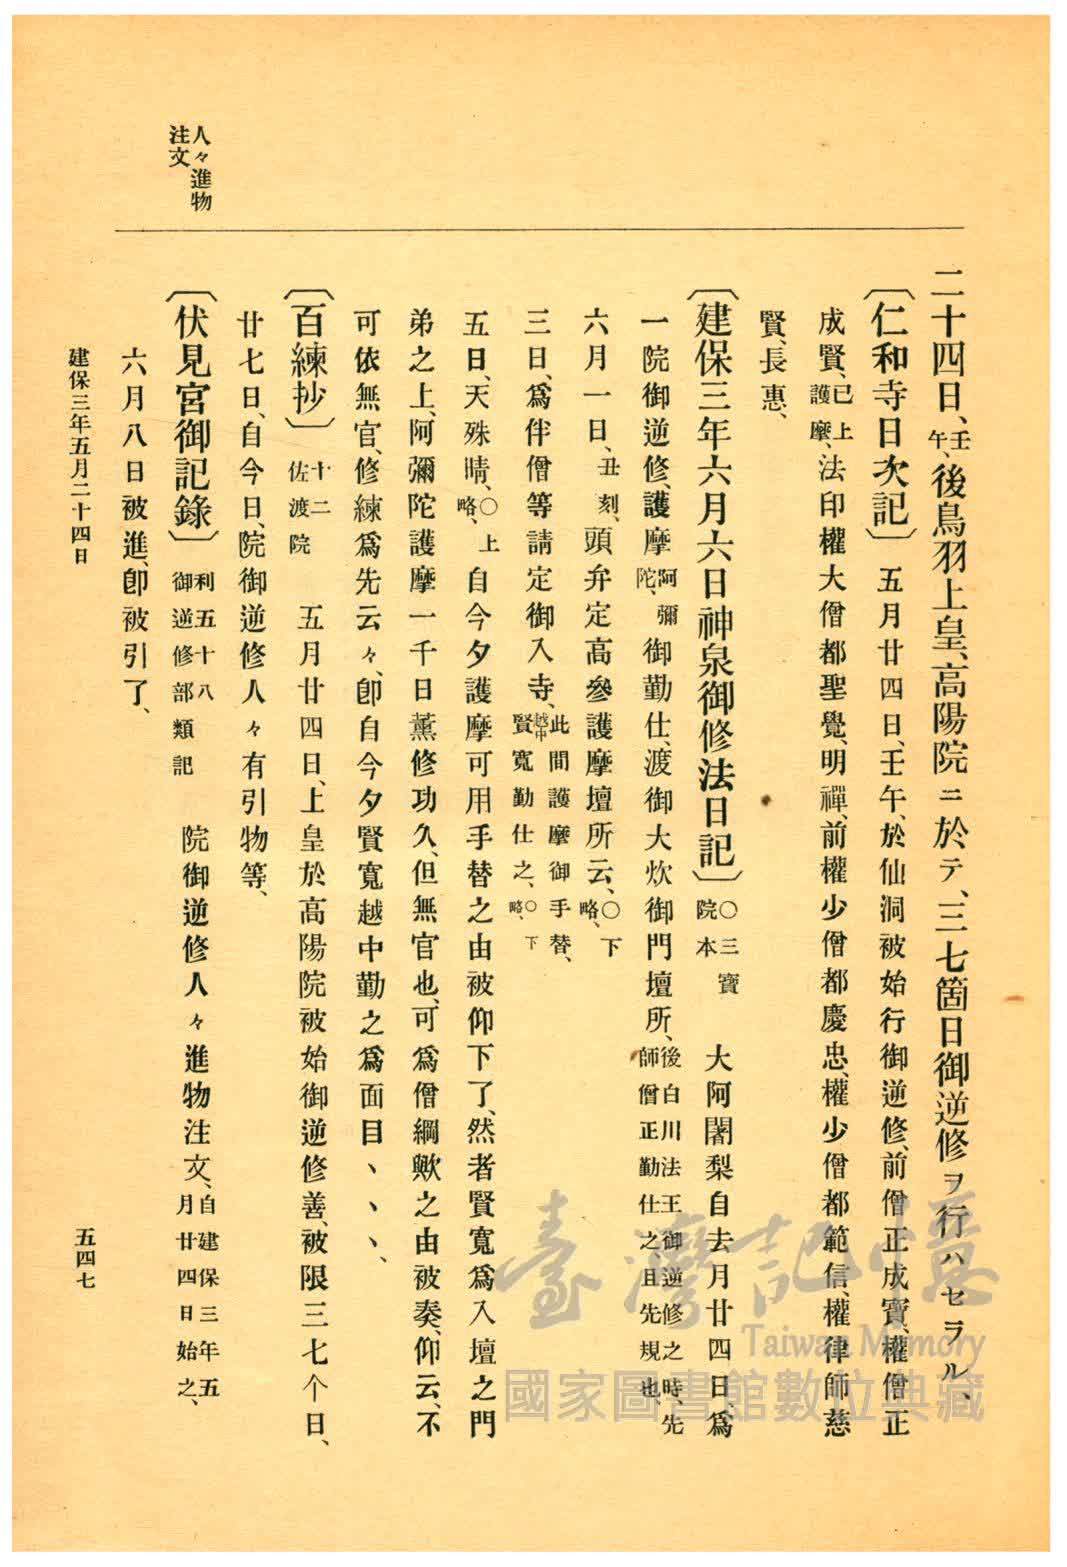 人々進物
注文
二十四日、壬午、後鳥羽上皇、高陽院ニ於テ、三七箇日御逆修ヲ行ハセラル、
〔仁和寺日次記〕 五月廿四日、壬午、於仙洞被始行御逆修、前僧正成寶、權僧正
成賢、已上護摩、法印權大僧都聖覺、明禪、前權少僧都慶忠、權少僧都範信、權律師慈
賢、長惠、
〔建保三年六月六日神泉御修法日記〕 ○三寶院本 大阿闍梨自去月廿四日、爲
一院御逆修、護摩阿彌陀、御勤仕、渡御大炊御門壇所、後白川法王御逆修之時、先師僧正勤仕之且先規也、
六月一日、丑刻、頭弁定高參護摩壇所云、○下略、
三日、爲伴僧等請定御入寺、此間護摩御手替、越中賢寬勤仕之、○下略、
五日、天殊晴、○上略、自今夕護摩可用手替之由被仰下了、然者賢寬爲入壇之門
弟之上、阿彌陀護摩一千日薰修功久、但無官也、可爲僧綱歟之由被奏、仰云、不
可依無官、修練爲先云々、卽自今夕賢寬越中勤之爲面目、、、、
〔百練抄〕 十二佐渡院 五月廿四日、上皇於高陽院被始御逆修善、被限三七个日、
廿七日、自今日、院御逆修人々有引物等、
〔伏見宮御記錄〕 利五十八御逆修部類記 院御逆修人々進物注文、自建保三年五月廿四日始之、
六月八日被進、卽被引了、
建保三年五月二十四日
五四七
臺灣記憶
Taiwan Memory
國家圖書館數位典藏